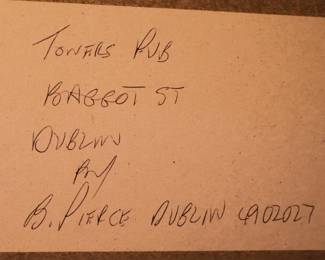 TONERS PUB
BAGGOT ST
DUBLIN
By
B. PIERCE DUBLIN 4902027